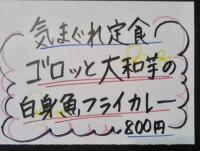 気まぐれ定食
ゴロッと大和芋の
白身魚フライカレー
800円